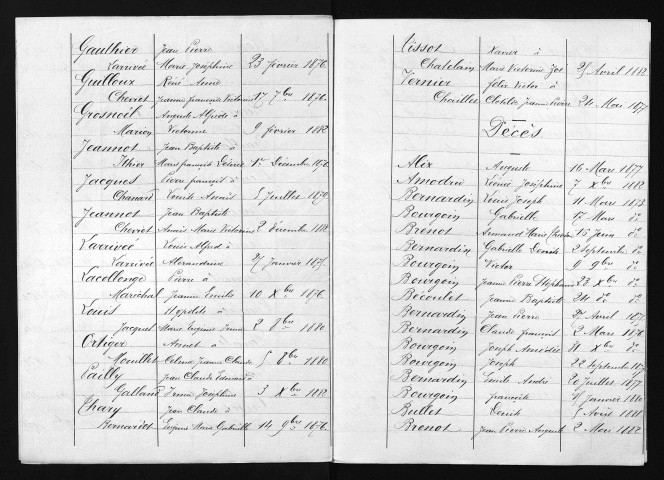 Gauthier Jean Pierre
Larrivée Marie Joséphine 23 février 1876
Guilloux Réné Aimé
Cheviet Jeanne françoise Victorine 17 7bre 1876
Grosneit Auguste Alfred à
Marion Victorine 9 février 1882
Jeannot Jean Baptiste à
Ithier Marie françoise Désirée 1er Décembre 1870
Jacques Pierre françois à
Chanard Louise Anaïs 5 Juillet 1870
Jeannot Jean Baptiste
Cheviet Anaïs Marie Victorine 2 Décembre 1882
Larriveé Louis Alfred à
Larrivée Alexandrine 27 Janvier 1875
Lacollonge Pierre à
Maréchal Jeanne Emilie 10 Xbre 1876
Louis Hopolite à
Jacques Marie Eugénie Irma 2 8bre 1880
Ortiger Annet à
Mouillet Celena Jeanne Claude 5 8bre 1880
Pailly Jean Claude Edouard à
Galland Irma Joséphine 3 Xbre 1882
Thary Jean Claude à
Bernardot Eugénie Marie Gabrielle 14 9bre 1876
Tissot Xavier à
Chatelain Marie Victorine Jos 25 Avril 1882
Vernier félix Victor à
Chaillet Clotilde Jeanne Pierre 24 Mai 1877
Décès
Alix Auguste 16 Mars 1877
Amodru Léonie Joséphine 7 Xbre 1882
Bernardin Louis Joseph 11 Mars 1873
Bourgoin Gabrielle 17 Mars do
Brenot Armand Marie 15 Juin do
Bernardin Gabrielle Denise 2 Septembre do
Bourgoin Victor 9 9bre do
Bourgoin Jeanne Pierre Stéphanie 23 Xbre do
Becoulet Jeanne Baptiste 24 do do
Bernardin Jean Pierre 2 Avril 1875
Bernardin Claude françois 2 Mars 1876
Bourgoin Joseph Amédée 11 Xbre do
Bourgoin Joseph 22 Septembre
Bernardin Emile André 20 Juillet 1877
Bourgoin françois Janvier 1880
Bullet Louis 5 Avril 1881
Brenot Jean Pierre Auguste 2 Mai 1882